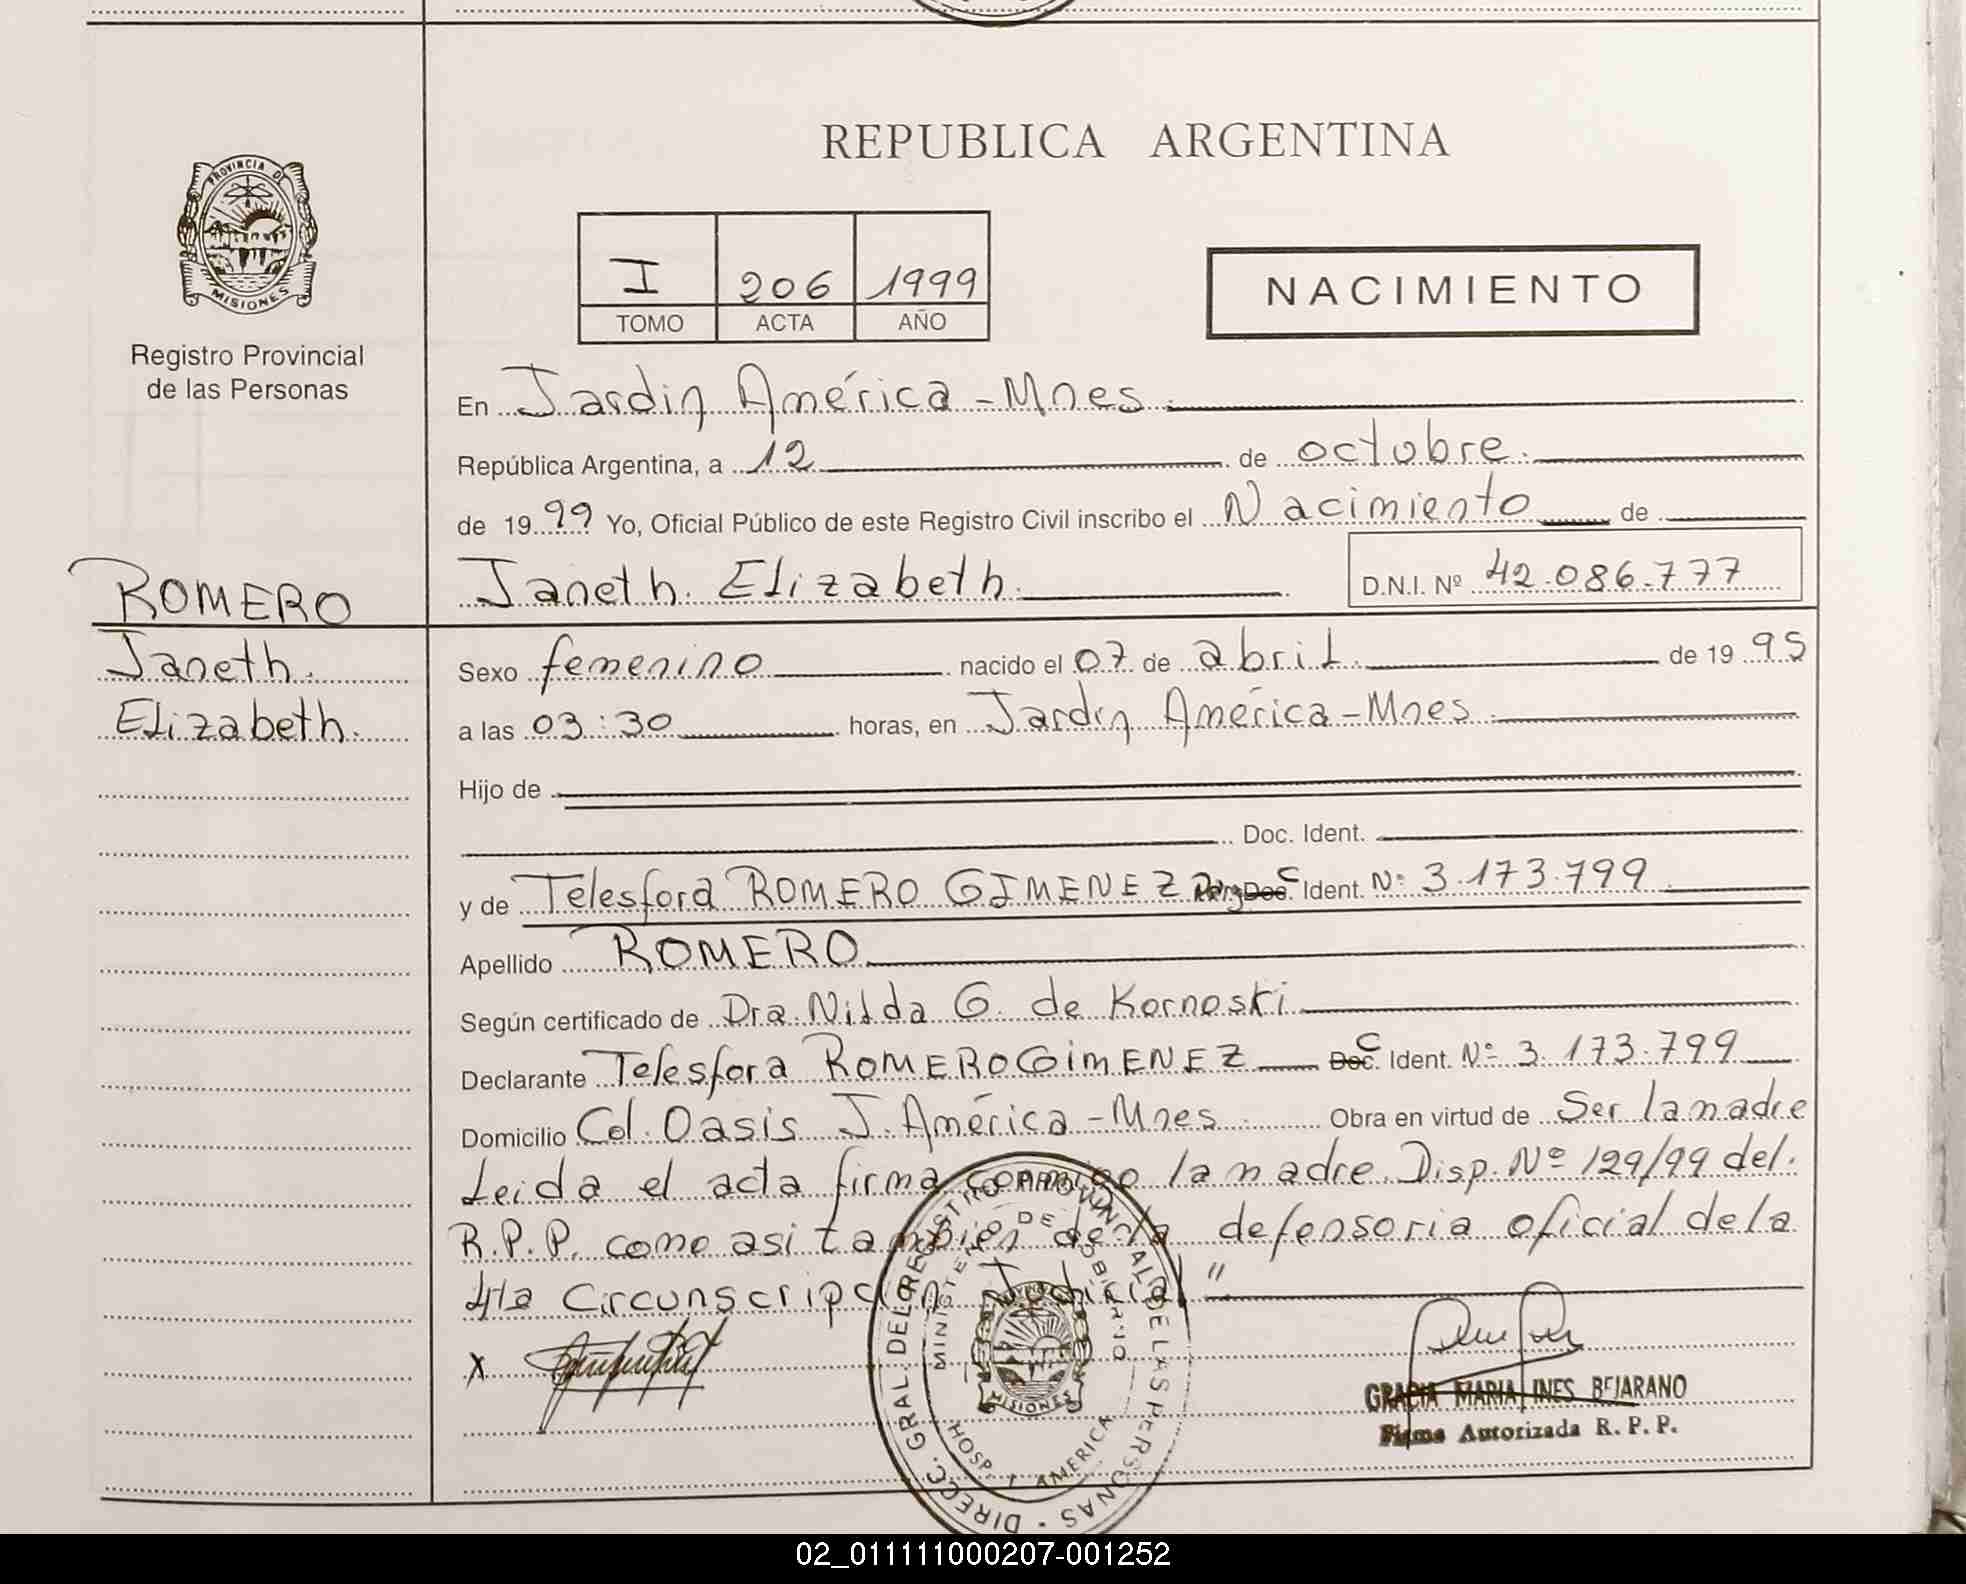 REPUBLICA ARGENTINA
PROVINCIA DE
MISIONES
Registro Provincial
de las Personas
I 206 1999
TOMO ACTA AÑO
NACIMIENTO
En Jardin América - Mnes.
República Argentina, a 12 de octubre.
de 1999 Yo, Oficial Público de este Registro Civil inscribo el Nacimiento de
ROMERO
Janeth.
Elizabeth.
Janeth. Elizabeth. D.N.I. Nº 42.086.777
Sexo femenino nacido el 07 de abril. de 1995
a las 03:30 horas, en Jardin América - Mnes
Hijo de
Doc. Ident.
y de Telesfora ROMERO GIMENEZ Doc. C Ident. Nº 3.173.799
Apellido ROMERO
Según certificado de Dra. Nilda G. de Kornoski
Declarante Telesfora ROMERO GIMENEZ Doc. C Ident. Nº 3.173.799
Domicilio Col. Oasis J. América - Mnes. Obra en virtud de Ser la madre
Leida el acta firma conmigo la madre. Disp. Nº 129/99 del.
R.P.P. como asi tambien de la defensoria oficial de la
4ta Circunscripcion Judicial"
X
DIRECC. GRAL. DEL REGISTRO PROVINCIAL DE LAS PERSONAS
MINISTERIO DE GOBIERNO
MISIONES
HOSP. J. AMERICA
GRACIA MARIA INES BEJARANO
Firma Autorizada R. P. P.
02_011111000207-001252